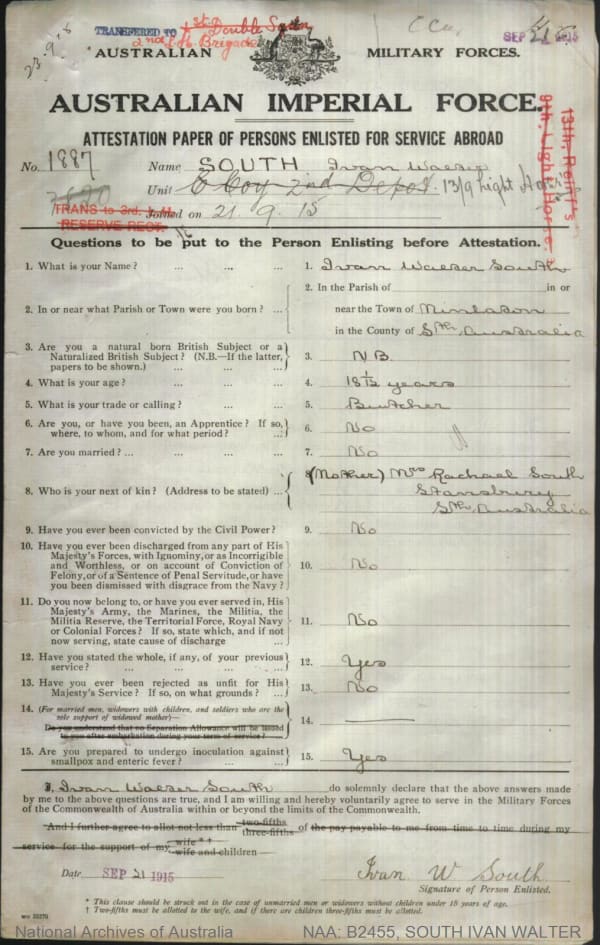 23-9-15
TRANSFERED TO 1st Double Sqdn
2nd L.H. Brigade
SEP 21 1915
AUSTRALIAN MILITARY FORCES.
AUSTRALIAN IMPERIAL FORCE.
ATTESTATION PAPER OF PERSONS ENLISTED FOR SERVICE ABROAD
13th Reinft's
9th Light Horse.
No. 1887 Name SOUTH Ivan Walter
Unit E Coy 2nd Depot. 13/9 Light Horse
TRANS to 3rd.
RESERVE REGT.
Joined on 21.9.15
Questions to be put to the Person Enlisting before Attestation.
1. What is your Name? ... ... ... 1. Ivan Walter South
2. In or near what Parish or Town were you born? ... 2. In the Parish of in or
near the Town of Minlaton
in the County of Sth Australia
3. Are you a natural born British Subject or a
Naturalized British Subject? (N.B.—If the latter,
papers to be shown.) ... ... 3. N.B.
4. What is your age? ... ... ... 4. 18 1/12 years
5. What is your trade or calling? ... ... 5. Butcher
6. Are you, or have you been, an Apprentice? If so,
where, to whom, and for what period? ... 6. No
7. Are you married? ... ... ... 7. No
8. Who is your next of kin? (Address to be stated) ... 8. (Mother) Mrs Rachael South
Stansbury
Sth Australia
9. Have you ever been convicted by the Civil Power? 9. No
10. Have you ever been discharged from any part of His
Majesty's Forces, with Ignominy, or as Incorrigible
and Worthless, or on account of Conviction of
Felony, or of a Sentence of Penal Servitude, or have
you been dismissed with disgrace from the Navy? 10. No
11. Do you now belong to, or have you ever served in, His
Majesty's Army, the Marines, the Militia, the
Militia Reserve, the Territorial Force, Royal Navy
or Colonial Forces? If so, state which, and if not
now serving, state cause of discharge ... 11. No
12. Have you stated the whole, if any, of your previous
service? ... ... ... 12. Yes
13. Have you ever been rejected as unfit for His
Majesty's Service? If so, on what grounds? ... 13. No
14. (For married men, widowers with children, and soldiers who are the
sole support of widowed mother)—
Do you understand that no Separation Allowance will be issued
to you after embarkation during your term of service? 14.
15. Are you prepared to undergo inoculation against
smallpox and enteric fever? ... ... 15. Yes
I, Ivan Walter South do solemnly declare that the above answers made
by me to the above questions are true, and I am willing and hereby voluntarily agree to serve in the Military Forces
of the Commonwealth of Australia within or beyond the limits of the Commonwealth.
And I further agree to allot not less than two-fifths three-fifths of the pay payable to me from time to time during my
service for the support of my wife * † wife and children
Date SEP 21 1915 Ivan W South
Signature of Person Enlisted.
* This clause should be struck out in the case of unmarried men or widowers without children under 18 years of age.
† Two-fifths must be allotted to the wife, and if there are children three-fifths must be allotted.
National Archives of Australia NAA: B2455, SOUTH IVAN WALTER